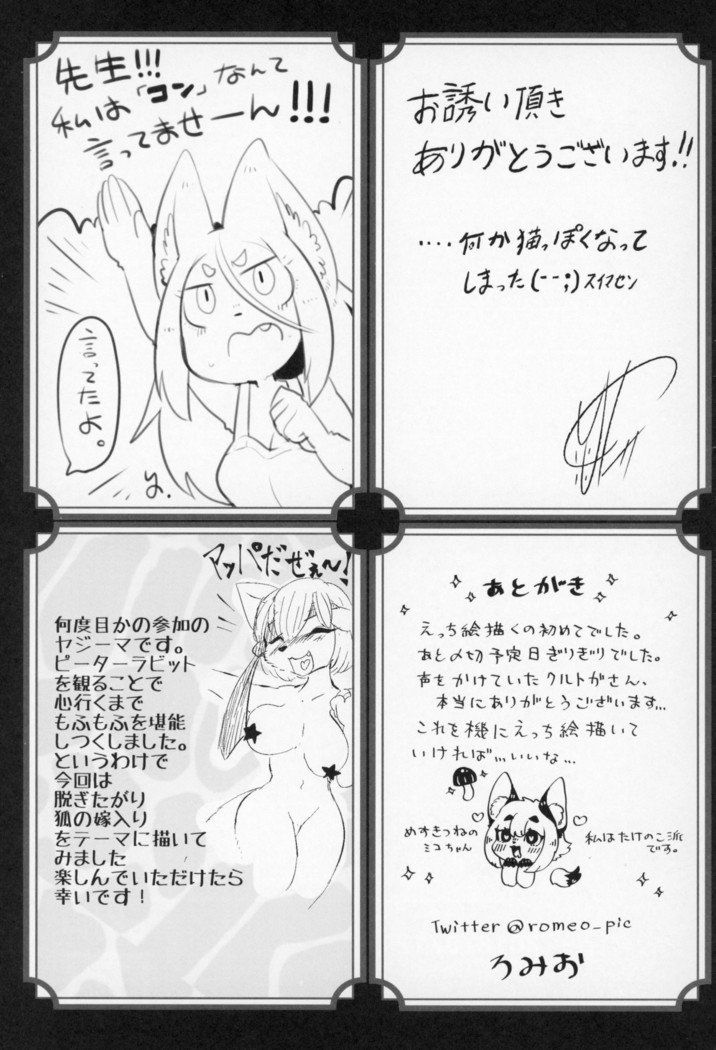 先生!!!
私は「コン」なんて
言ってませーん!!!
言ってたよ。
お誘い頂き
ありがとうございます!!
....何か猫っぽくなって
しまった(--;)スイマセン
マッパだぜぇ〜!
何度目かの参加の
ヤジーマです。
ピーターラビット
を観ることで
心行くまで
もふもふを堪能
しつくしました。
というわけで
今回は
脱ぎたがり
狐の嫁入り
をテーマに描いて
みました
楽しんでいただけたら
幸いです!
あとがき
えっち絵描くの初めてでした。
あと〆切予定日ぎりぎりでした。
声をかけていたクルトガさん、
本当にありがとうございます...
これを機にえっち絵描いて
いければ...いいな...
めすきつねの
ミコちゃん
私はたけのこ派
です。
Twitter@romeo_pic
ろみお